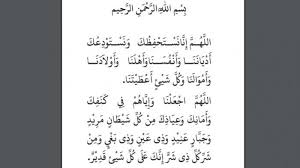 بِسْمِ اللهِ الرَّحْمٰنِ الرَّحِيمِ
اَللّٰهُمَّ إِنَّانَسْتَحْفِظُكَ وَنَسْتَوْدِعُكَ
أَدْيَانَنَا وَأَنْفُسَنَاوَأَهْلَنَا وَأَوْلَادَنَا
وَأَمْوَالَنَا وَكُلَّ شَيْئٍ أَعْطَيْتَنَا.
اَللّٰهُمَّ اجْعَلْنَا وَإِيَّاهُمْ فِي كَنَفِكَ
وَأَمَانِكَ وَعِيَاذِكَ مِنْ كُلِّ شَيْطَانٍ مَرِيْدٍ
وَجَبَّارٍ عَنِيْدٍ وَذِى عَيْنٍ وَذِى بَغْيٍ وَمِنْ
شَرِّكُلِّ ذِى شَرٍّ إِنَّكَ عَلَى كُلِّ شَيْئٍ قَدِيْرٌ.